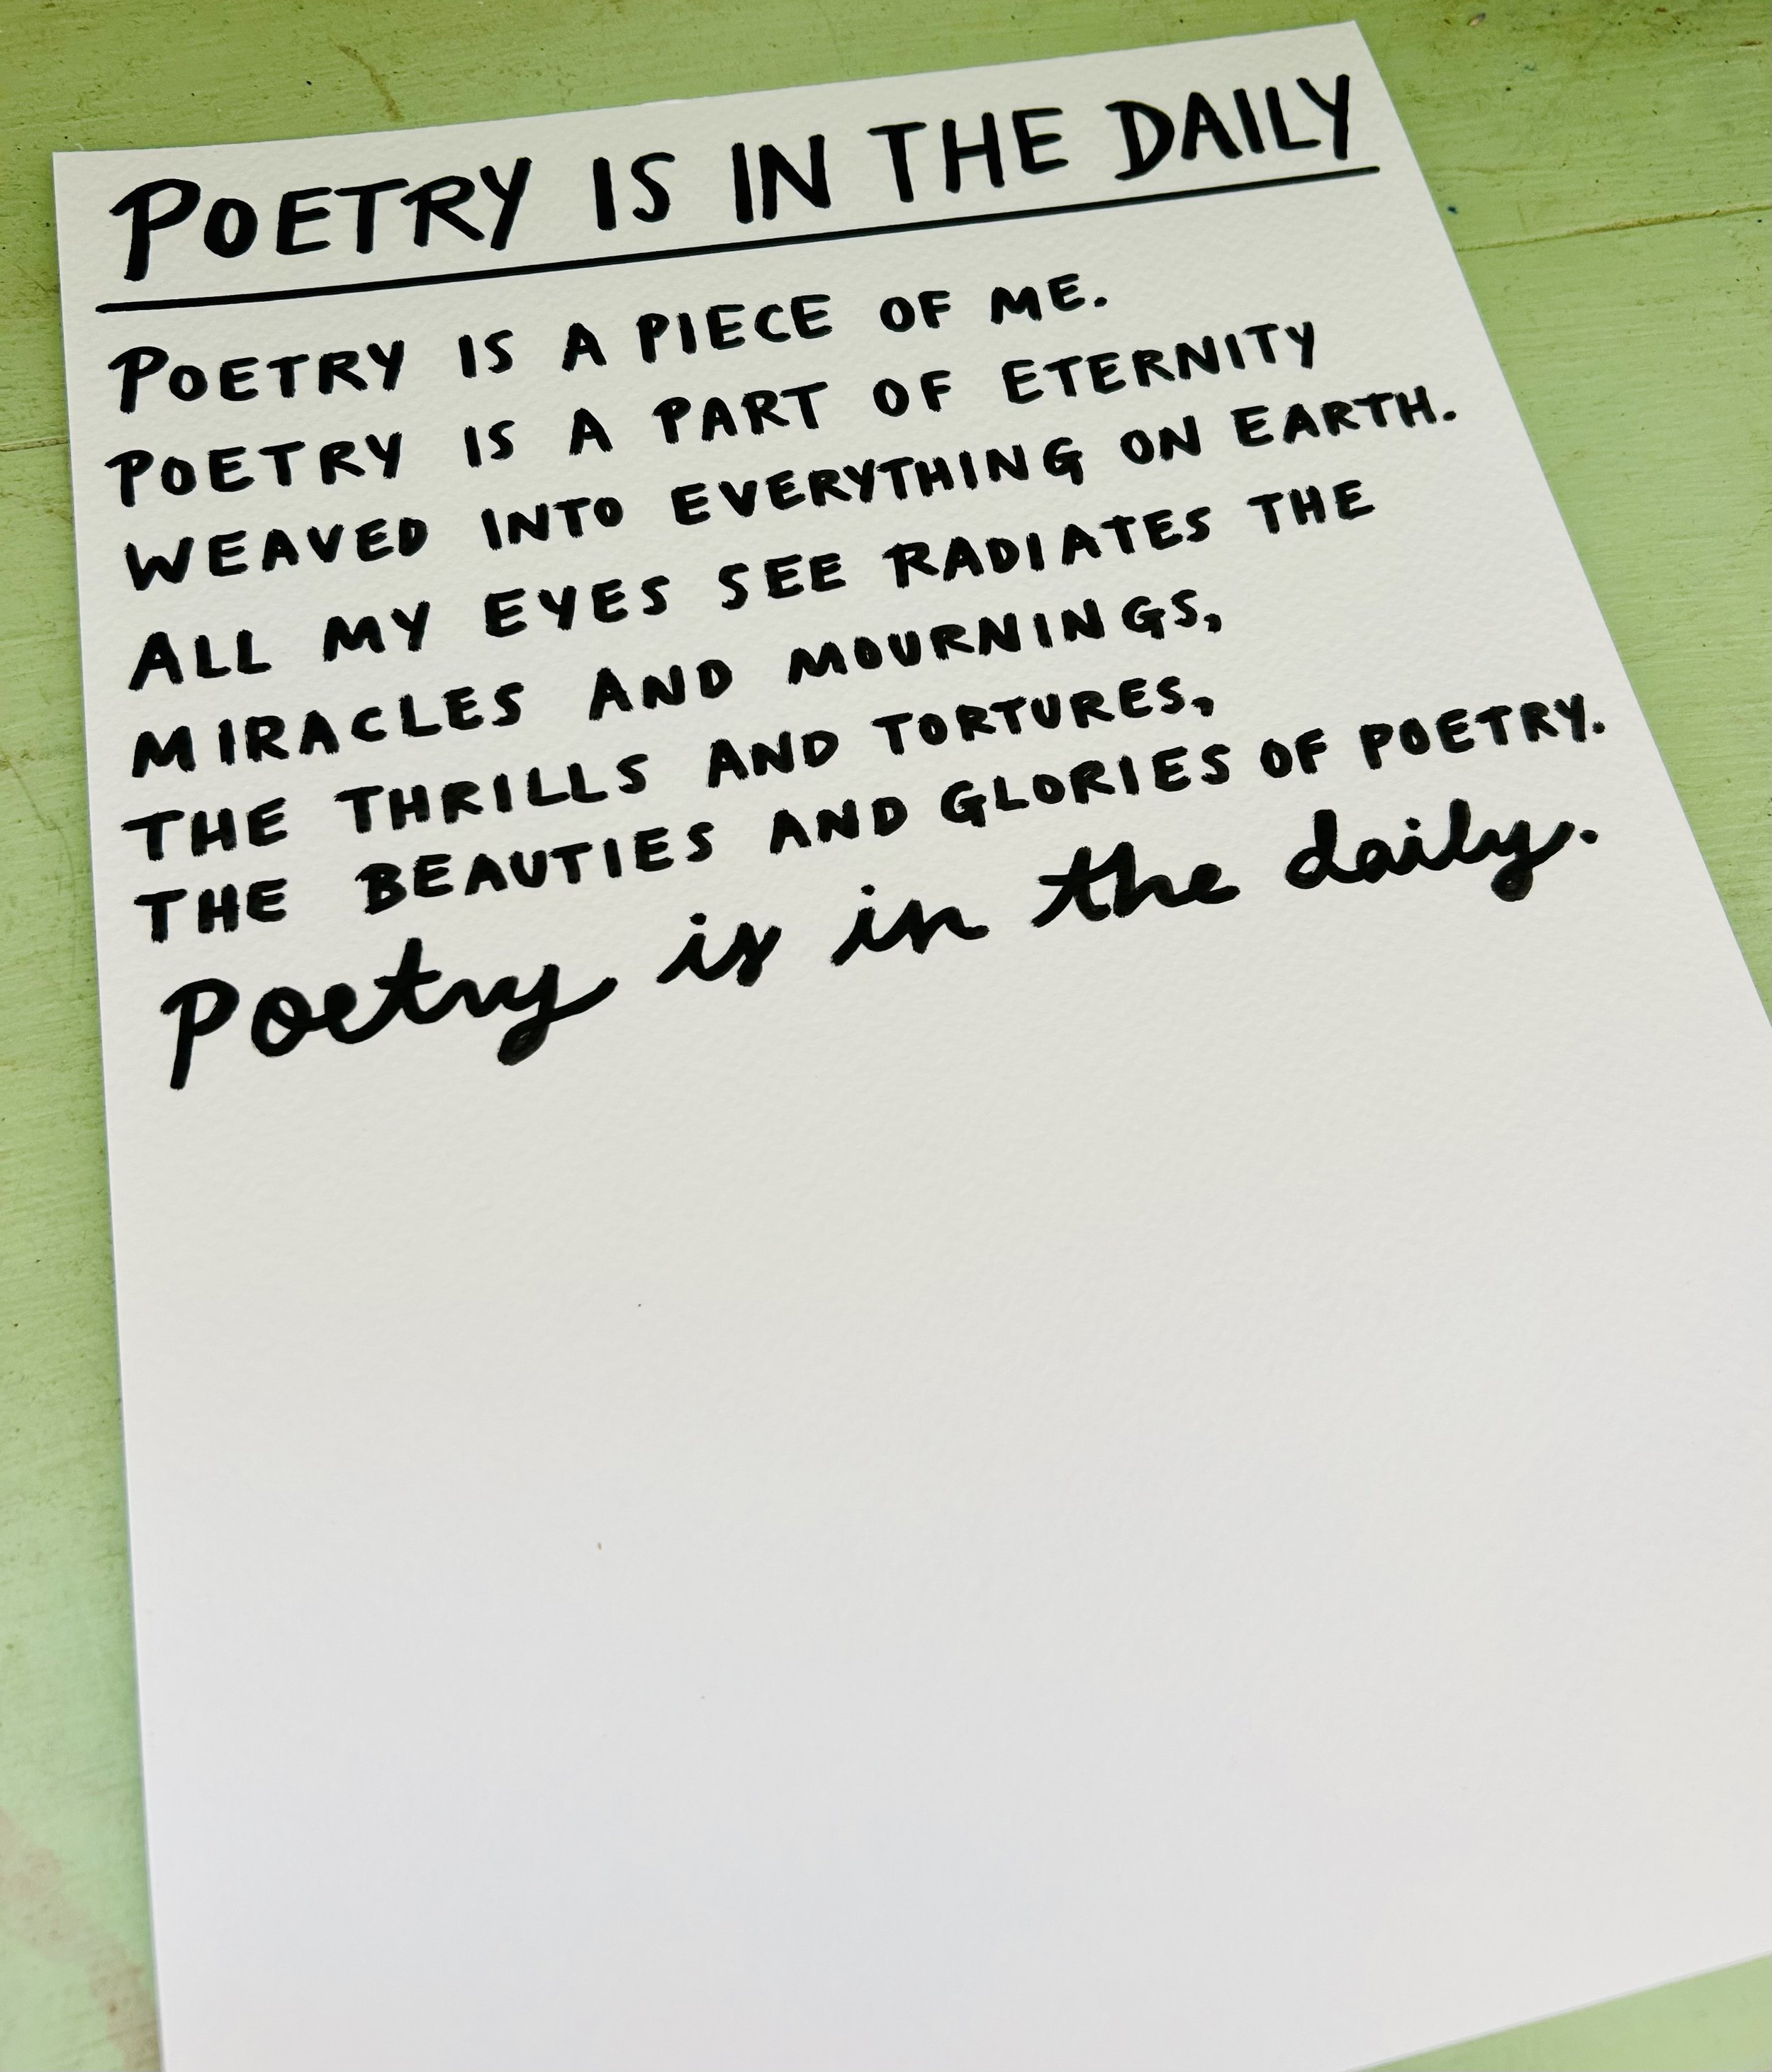 POETRY IS IN THE DAILY
POETRY IS A PIECE OF ME.
POETRY IS A PART OF ETERNITY
WEAVED INTO EVERYTHING ON EARTH.
ALL MY EYES SEE RADIATES THE
MIRACLES AND MOURNINGS,
THE THRILLS AND TORTURES,
THE BEAUTIES AND GLORIES OF POETRY.
Poetry is in the daily.